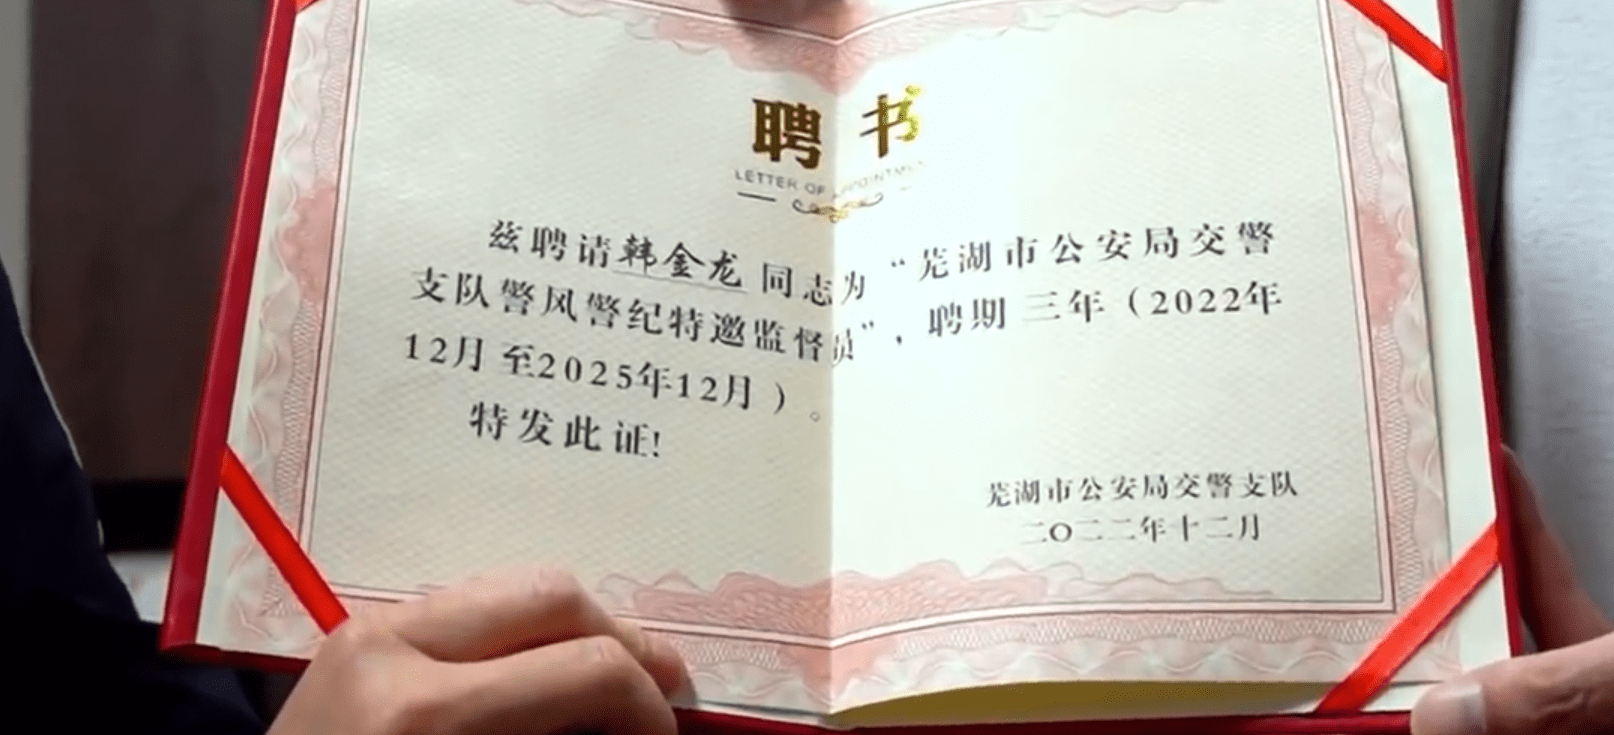 聘书
LETTER OF APPOINTMENT
兹聘请韩金龙同志为“芜湖市公安局交警
支队警风警纪特邀监督员”，聘期三年（2022年
12月至2025年12月）。
特发此证!
芜湖市公安局交警支队
二〇二二年十二月